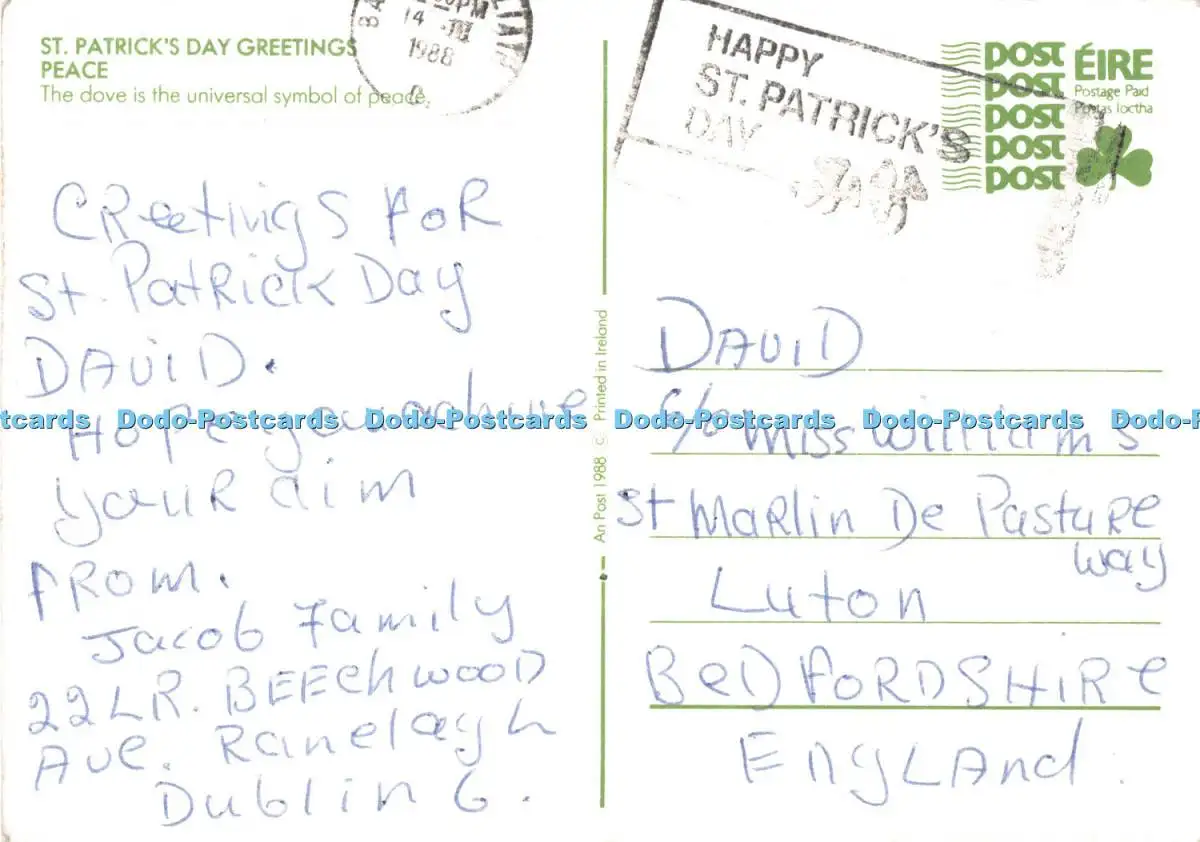 ST. PATRICK'S DAY GREETINGS
PEACE
The dove is the universal symbol of peace.
14 III
1988
HAPPY
ST. PATRICK'S
DAY
POST
POST
POST
POST
POST
ÉIRE
Postage Paid
Postas Íoctha
GReetings foR
St. PatRick Day
DAViD.
Hope you achive
youR aim
fRom.
Jacob Family
22 LR. BEEchwooD
Ave. Ranelagh
Dublin 6.
An Post 1988 C. Printed in Ireland
DAViD
c/o miss williams
St MaRlin De PastuRe
way
Luton
BeDfoRDSHiRe
EngLAnd.
Dodo-Postcards Dodo-Postcards Dodo-Postcards Dodo-Postcards